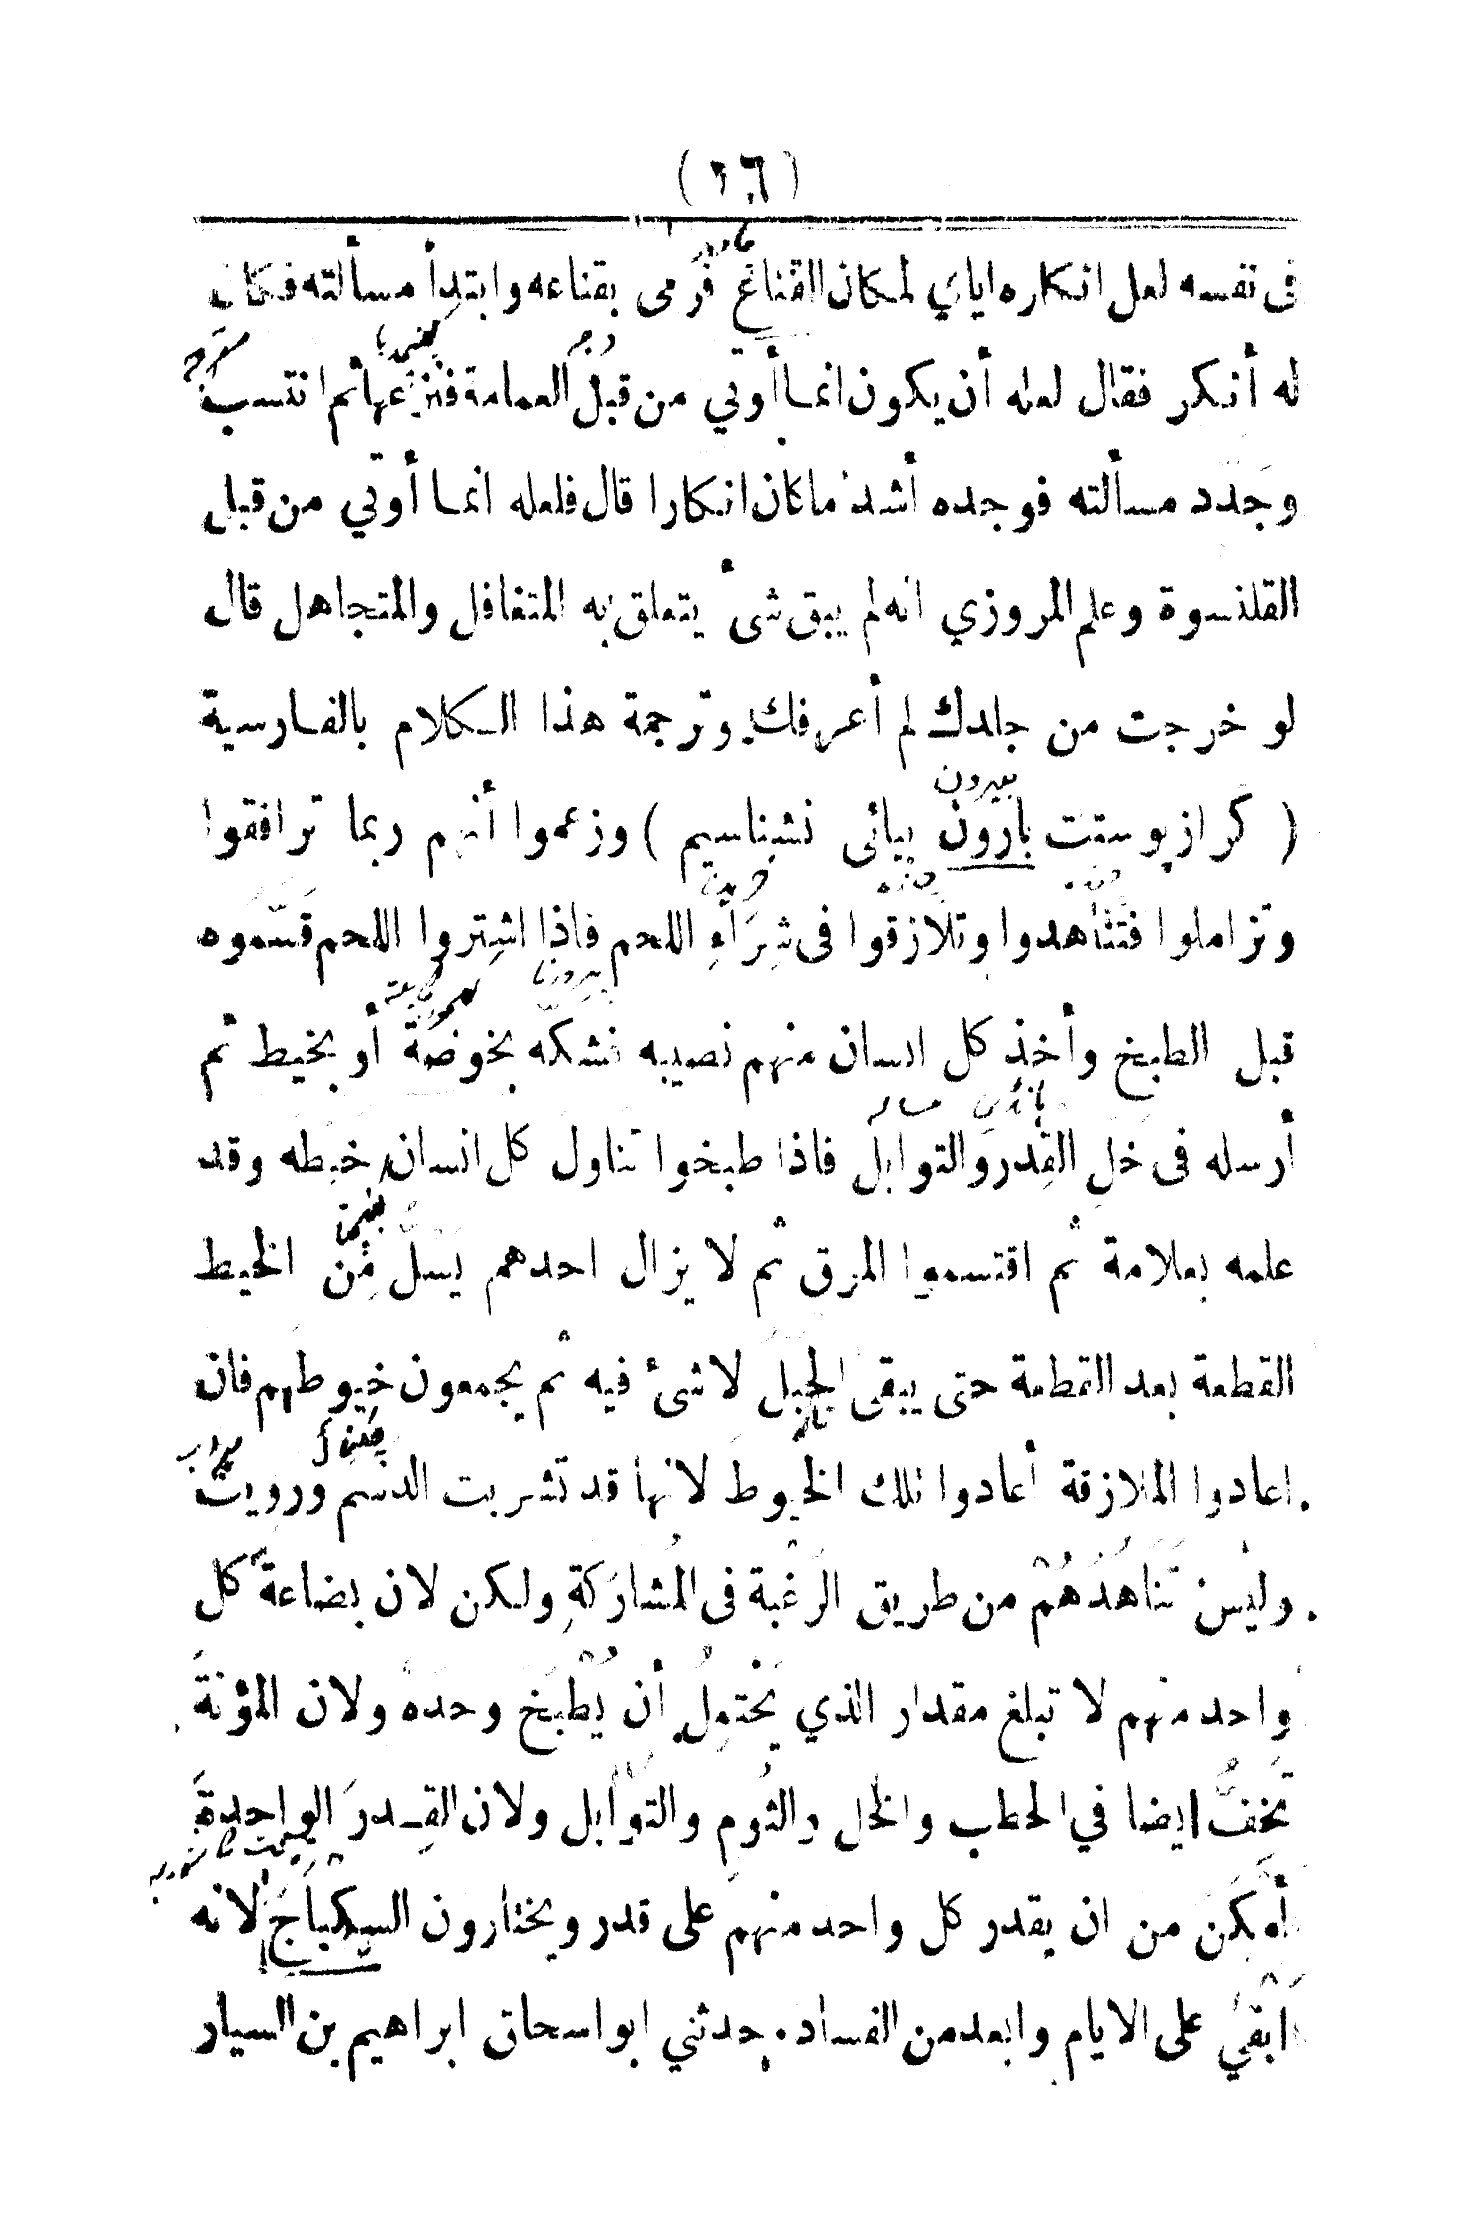 (١٦)
فى نفسه لعل انكاره اياي لمكان القناع فرمى بقناعه وابتدأ مسألته فكان
له أنكر فقال لعله أن يكون انما أوتي من قبل العمامة فنزعها ثم انتسب
وجدد مسألته فوجده أشد ما كان انكارا قال فلعله انما أوتي من قبل
القلنسوة وعلم المروزي انه لم يبق شىء يتعلق به المتغافل والمتجاهل قال
لو خرجت من جلدك لم أعرفك وترجمة هذا الكلام بالفارسية
بيرون
( كر از پوستت بارون بيائى نشناسيم ) وزعموا أنهم ربما ترافقوا
وتزاملوا فتناهدوا وتلازقوا فى شراء اللحم فاذا اشتروا اللحم قسموه
قبل الطبخ وأخذ كل انسان منهم نصيبه فشكه بخوصة أو بخيط ثم
أرسله فى خل القدر والتوابل فاذا طبخوا تناول كل انسان خيطه وقد
علمه بعلامة ثم اقتسموا المرق ثم لا يزال احدهم يسل من الخيط
القطعة بعد القطعة حتى يبقى الحبل لا شئ فيه ثم يجمعون خيوطهم فان
اعادوا الملازقة أعادوا تلك الخيوط لانها قد تشربت الدسم ورويت
وليس تَناهُدُهُمْ من طريق الرَغبة فى المُشارَكةِ ولكن لان بضاعة كل
واحد منهم لا تبلغ مقدار الذي يَحْتمِلُ أن يُطْبَخ وحدهُ ولان المؤنةَ
تخفُّ ايضا في الحطب والخل والثُومِ والتوابل ولان القِدرَ الواحدةَ
أمكَن من ان يقدر كل واحد منهم على قدر ويختارون السِكباجَ لانه
أبقي على الايام وابعد من الفساد. حدثني ابو اسحاق ابراهيم بن السيار